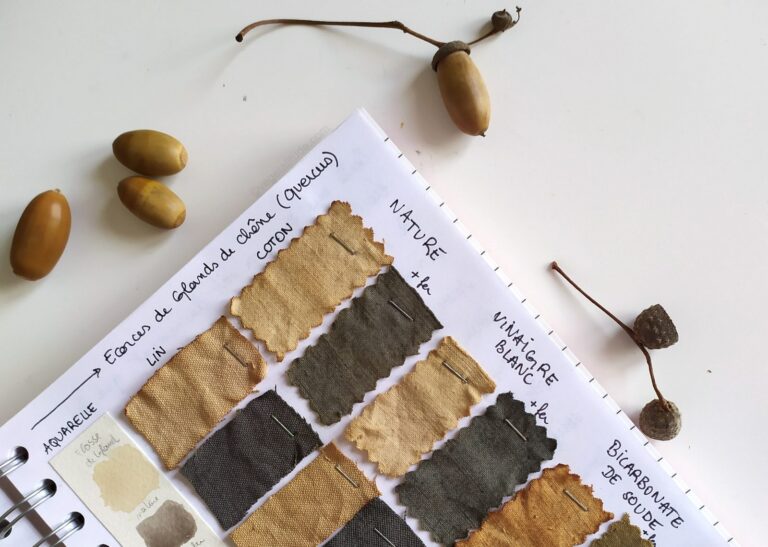 → Ecorces de Glands de chêne (quercus)
AQUARELLE
LIN
COTON
NATURE
+ fer
VINAIGRE
BLANC
+ fer
BICARBONATE
DE SOUDE
+ fer